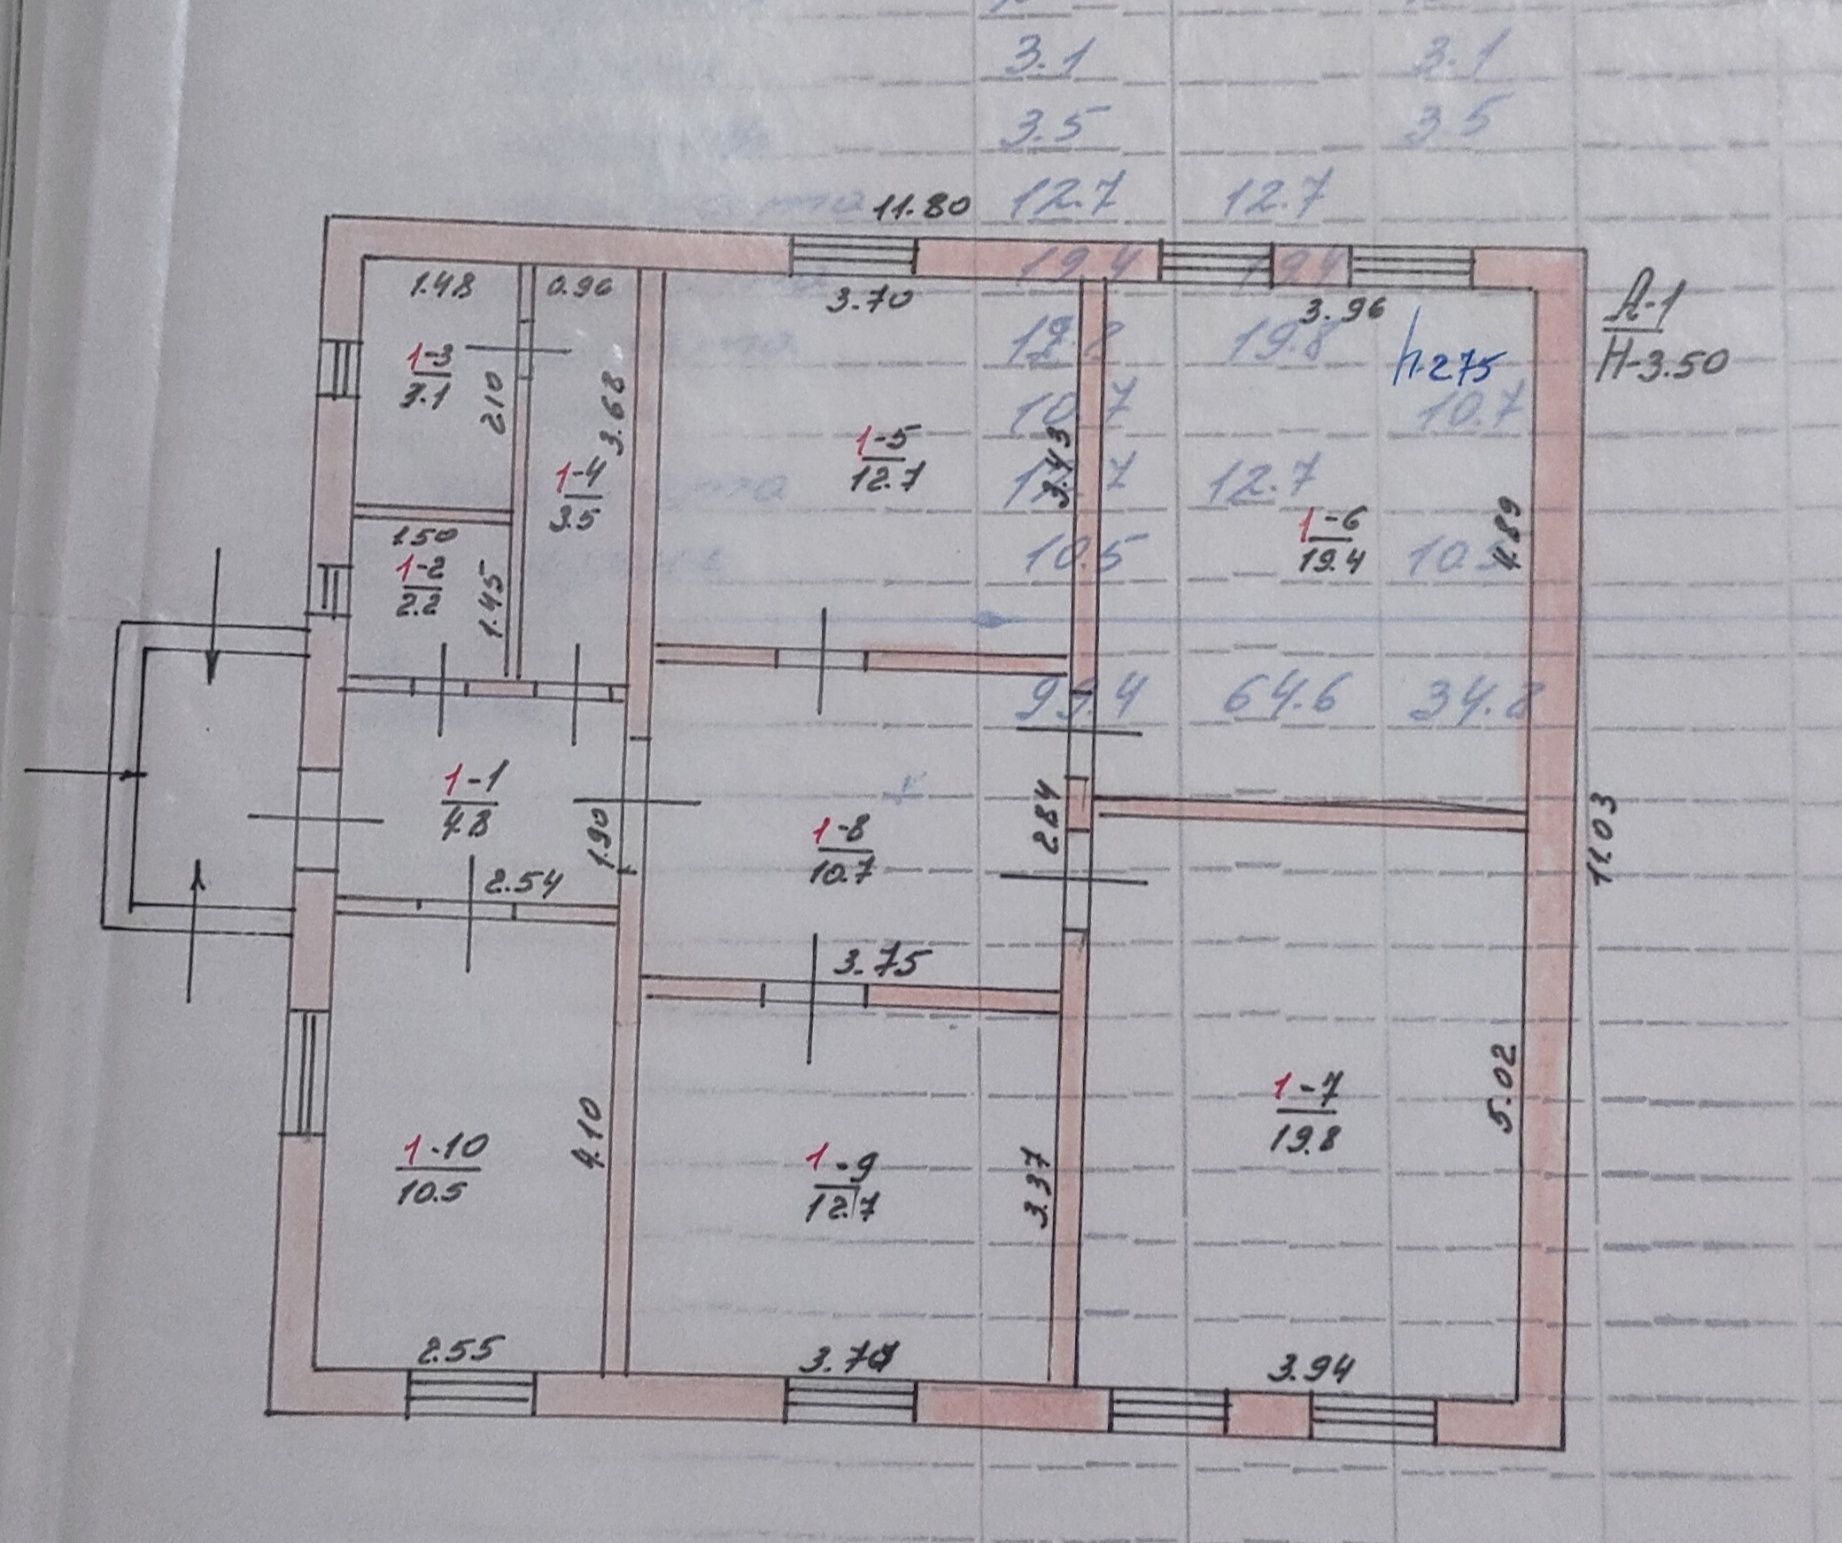 3.1 3.1
3.5 3.5
12.7 12.7
11.80
19.4 19.4
1.48 0.96 3.70 3.96
А-1
Н-3.50
h-275
19.8 19.8
1-3
3.1
2.10
3.68
10.7 10.7
1-5
12.7
3.43
1-4
3.5
12.7 12.7
1-6
19.4
4.89
1.50
1-2
2.2
1.45
10.5 10.5
99.4 64.6 34.8
1-1
4.8
1.90
2.54
1-8
10.7
2.84
11.03
3.75
1-10
10.5
4.10
1-9
12.7
3.37
1-7
19.8
5.02
2.55 3.94